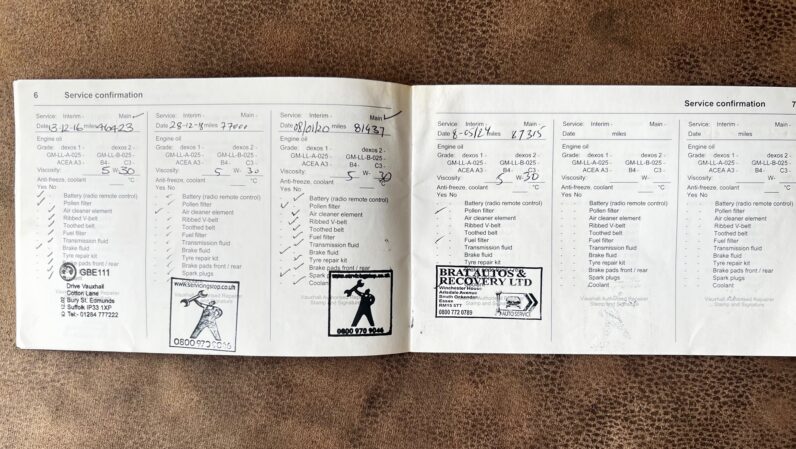 6 Service confirmation
Service: Interim - Main -
Date 13-12-16 miles
Engine oil
Grade: dexos 1 - dexos 2 -
GM-LL-A-025 - GM-LL-B-025 -
ACEA A3 - B4- C3 -
Viscosity: 5 W- 30
Anti-freeze, coolant °C
Yes No
Battery (radio remote control)
Pollen filter
Air cleaner element
Ribbed V-belt
Toothed belt
Fuel filter
Transmission fluid
Brake fluid
Tyre repair kit
Brake pads front / rear
Spark plugs
GBE111
Drive Vauxhall
Cotton Lane
Bury St. Edmunds
Suffolk IP33 1XP
Tel:- 01284 777222
Service: Interim - Main -
Date 28-12-18 miles 77000
Engine oil
Grade: dexos 1 - dexos 2 -
GM-LL-A-025 - GM-LL-B-025 -
ACEA A3 - B4- C3 -
Viscosity: 5 W- 30
Anti-freeze, coolant °C
Yes No
Battery (radio remote control)
Pollen filter
Air cleaner element
Ribbed V-belt
Toothed belt
Fuel filter
Transmission fluid
Brake fluid
Tyre repair kit
Brake pads front / rear
Spark plugs
www.servicingstop.co.uk
0800 970 9046
Service: Interim - Main -
Date 08/01/20 miles 81937
Engine oil
Grade: dexos 1 - dexos 2 -
GM-LL-A-025 - GM-LL-B-025 -
ACEA A3 - B4- C3 -
Viscosity: 5 W- 30
Anti-freeze, coolant °C
Yes No
Battery (radio remote control)
Pollen filter
Air cleaner element
Ribbed V-belt
Toothed belt
Fuel filter
Transmission fluid
Brake fluid
Tyre repair kit
Brake pads front / rear
Spark plugs
Coolant
www.servicingstop.co.uk
0800 970 9046
Service confirmation 7
Service: Interim - Main -
Date 8-05/24 miles 87315
Engine oil
Grade: dexos 1 - dexos 2 -
GM-LL-A-025 - GM-LL-B-025 -
ACEA A3 - B4- C3 -
Viscosity: 5 W- 30
Anti-freeze, coolant °C
Yes No
Battery (radio remote control)
Pollen filter
Air cleaner element
Ribbed V-belt
Toothed belt
Fuel filter
Transmission fluid
Brake fluid
Tyre repair kit
Brake pads front / rear
BRAT AUTOS &
RECOVERY LTD
Winchester House
Arisdale Avenue
South Ockendon
Essex
RM15 5TT
0800 772 0789
AUTOSERVICE
Service: Interim - Main -
Date miles
Engine oil
Grade: dexos 1 - dexos 2 -
GM-LL-A-025 - GM-LL-B-025 -
ACEA A3 - B4- C3 -
Viscosity: W-
Anti-freeze, coolant °C
Yes No
Battery (radio remote control)
Pollen filter
Air cleaner element
Ribbed V-belt
Toothed belt
Fuel filter
Transmission fluid
Brake fluid
Tyre repair kit
Brake pads front / rear
Spark plugs
Coolant
Vauxhall Authorised Repairer
Stamp and Signature
Service: Interim - Main -
Date miles
Engine oil
Grade: dexos 1 - dexos 2 -
GM-LL-A-025 - GM-LL-B-025 -
ACEA A3 - B4- C3 -
Viscosity: W-
Anti-freeze, coolant °C
Yes No
Battery (radio remote control)
Pollen filter
Air cleaner element
Ribbed V-belt
Toothed belt
Fuel filter
Transmission fluid
Brake fluid
Tyre repair kit
Brake pads front / rear
Spark plugs
Coolant
Vauxhall Authorised Repairer
Stamp and Signature